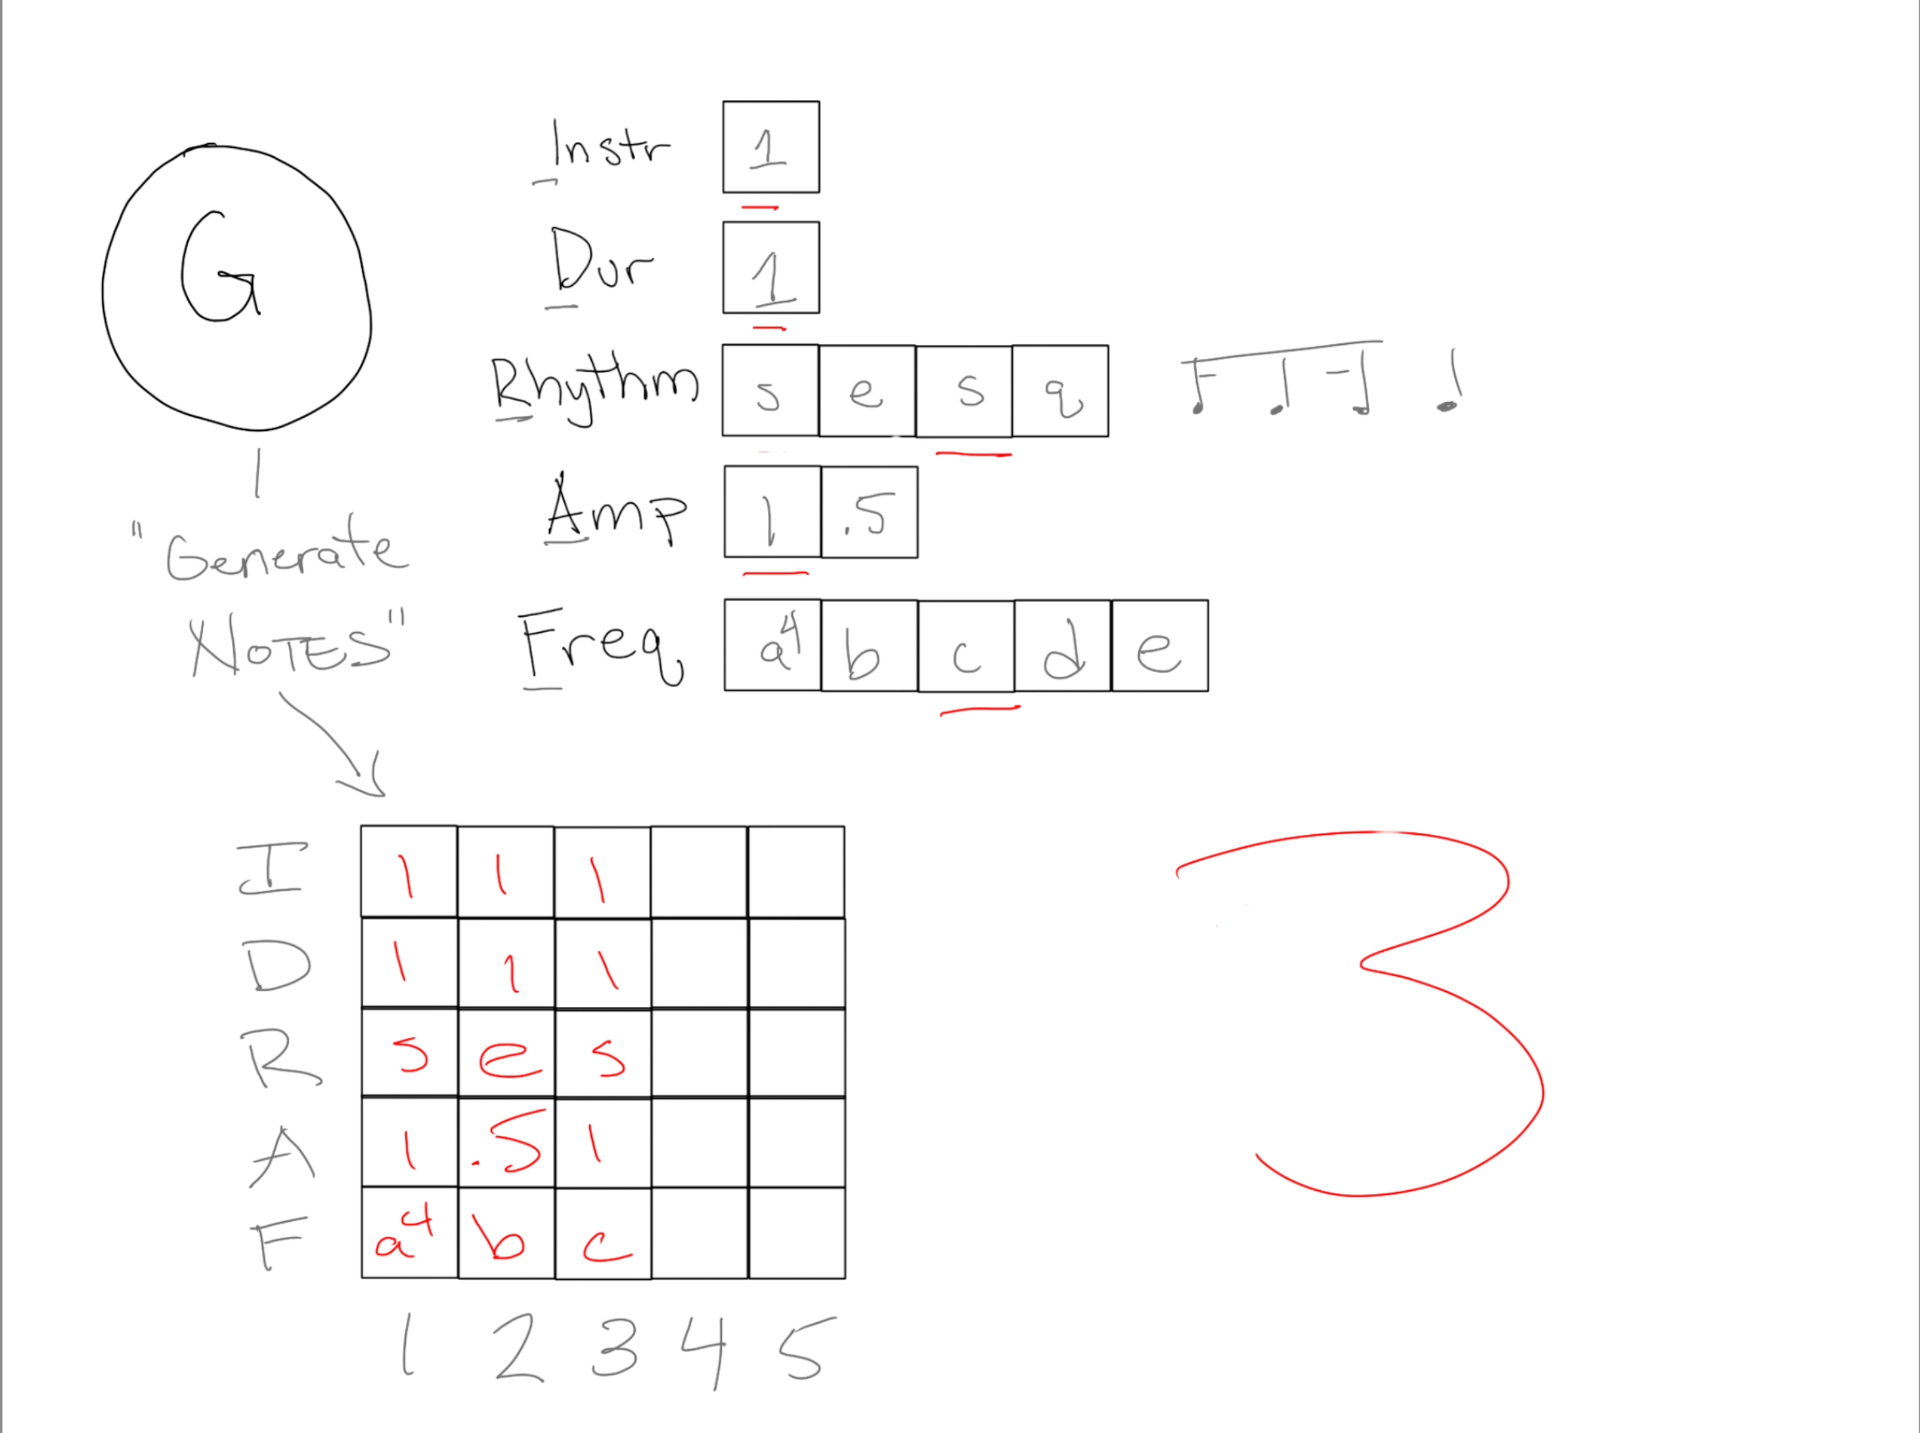 G
"Generate
NOTES"
Instr 1
Dur 1
Rhythm s e s q
Amp 1 .5
Freq a⁴ b c d e
I 1 1 1
D 1 1 1
R s e s
A 1 .5 1
F a⁴ b c
1 2 3 4 5
3